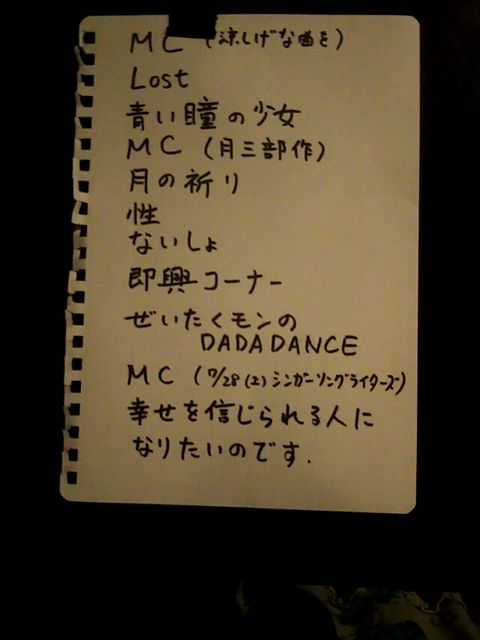 MC (涼しげな曲を)
Lost
青い瞳の少女
MC (月三部作)
月の祈り
性
ないしょ
即興コーナー
ぜいたくモンの
DADADANCE
MC (7/28(土)シンガーソングライターズ)
幸せを信じられる人に
なりたいのです.